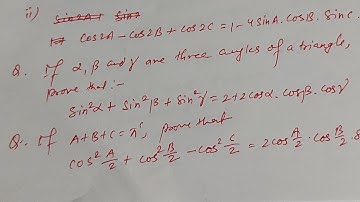 ii)
cos2A - cos2B + cos2C = 1 - 4sinA. cosB. sinC.
Q. If α, β and γ are three angles of a triangle,
prove that:-
sin²α + sin²β + sin²γ = 2+2cosα. cosβ. cosγ
Q. If A+B+C = πᶜ, prove that
cos² A/2 + cos² B/2 - cos² C/2 = 2cos A/2 . cos B/2 .